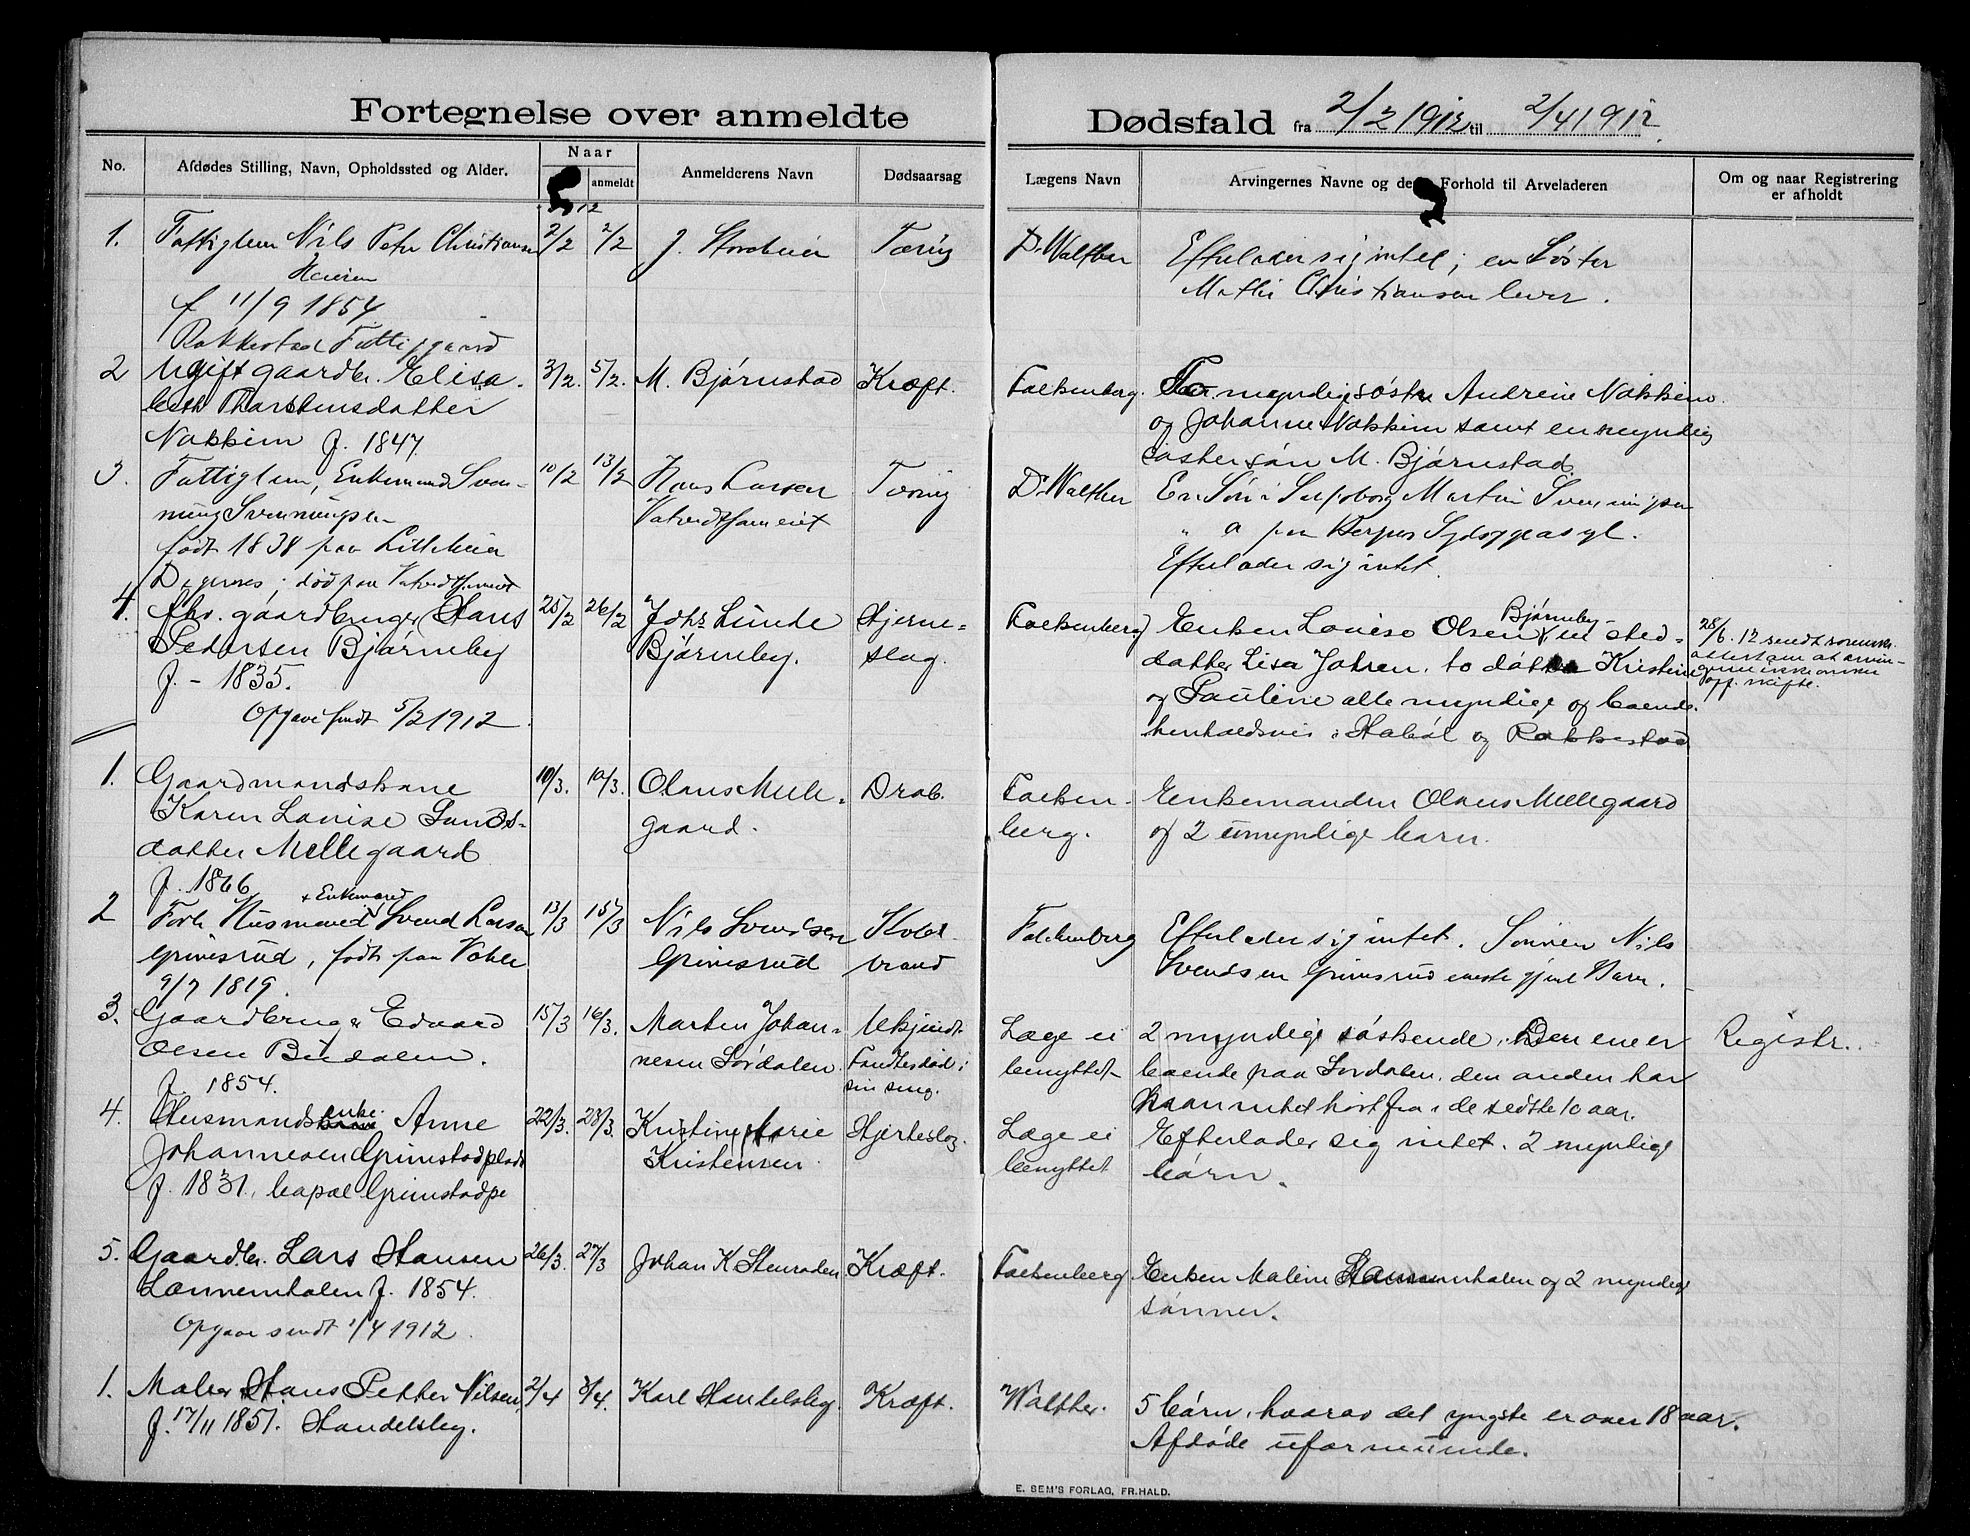 Fortegnelse over anmeldte Dødsfald fra 2/2 1912 til 2/4 1912.
No. Afdødes Stilling, Navn, Opholdssted og Alder. Naar anmeldt Anmelderens Navn Dødsaarsag Lægens Navn Arvingernes Navne og de Forhold til Arveladeren Om og naar Registrering er afholdt
1. Fattiglem Nils Peter Christiansen 2/2 2/2 J. Storeheier Tæring Dr. Walther Efterlader sig intet; en Søster
Heieren Mathi Christiansen lever.
f 11/9 1854
Rakkestad Fattiggaard
2 Ugift gaardbr. Elisa- 3/2. 5/2. M. Bjørnstad Kræft. Falkenberg. To myndige søstre Andrine Nakkim
beth Thorstensdatter og Johanne Nakkim samt en myndig
Nakkim f. 1847. søstersøn M. Bjørnstad.
3. Fattiglem, Enkemand Sven- 10/2 13/2 Hans Larsen Tæring Dr. Walther En Søn i Sarpsborg Martin Svenningsen
ning Svenningsen Vatvedthameiet " a paa Sydsyggeasyl.
født 1838 paa Lilleheier Efterlader sig intet.
Degernes; død paa Vatvedthameiet
4. fhv. gaardbruger Hans 25/2 26/2 Johs Lunde Hjerne- Falkenberg Enken Lovise Olsen Bjørneby en sted- 28/6.12 sendt
Pedersen Bjørneby Bjørneby. slag. datter Lisa Johren, to døtre Kristine
f. - 1835. og Pauline alle myndige og boende off. skifte.
Opgave sendt 5/3 1912. henholdsvis i Habøl og Rakkestad
1. Gaardmandskone 10/3. 10/3. Olaus Melle- Drab. Falken- Enkemanden Olaus Mellegaard
Karen Lovise Lunds- gaard. berg. og 2 umyndige barn.
datter Mellegaard
f. 1866
2 Forh Husmand + Enkemand Svend Larsen 13/3 15/3 Nils Svendsen Kold- Falkenberg Efterlader sig intet. Sønnen Nils
Grimsrud, født paa Grimsrud brand Svendsen Grimsrud eneste gjenl Barn.
9/7 1819.
3. Gaardbruger Edvard 15/3 16/3. Martin Johan- Ukjendt Læge ei 2 myndige søskende. Den ene er Registr.
Olsen Budalen. nesen Sørdalen. Fandtes død i benyttet boende paa Sørdalen, den anden har
f. 1854. sin seng. man intet hørt fra i de sidste 10 aar.
4. Husmandsenke Anne 22/3. 23/3. Kristine Marie Hjerteslag. Læge ei Efterlader sig intet. 2 myndige
Johannesen Grimstadplads Kristensen benyttet børn.
f. 1831, bopæl Grimstadpl
5. Gaardbr. Lars Hansen 26/3. 27/3 Johan K Stenroden Kræft. Falkenberg Enken Maline og 2 myndige
Lannemholen f. 1854. sønner.
Opgave sendt 1/4 1912.
1. Maler Hans Petter Nilsen 2/4 3/4. Karl Handelsby Kræft. Walther. 5 børn, hvorav det yngste er over 18 aar.
f. 17/11 1851. Handelsby. Afdøde uformuende.
E. SEM'S FORLAG, FR.HALD.